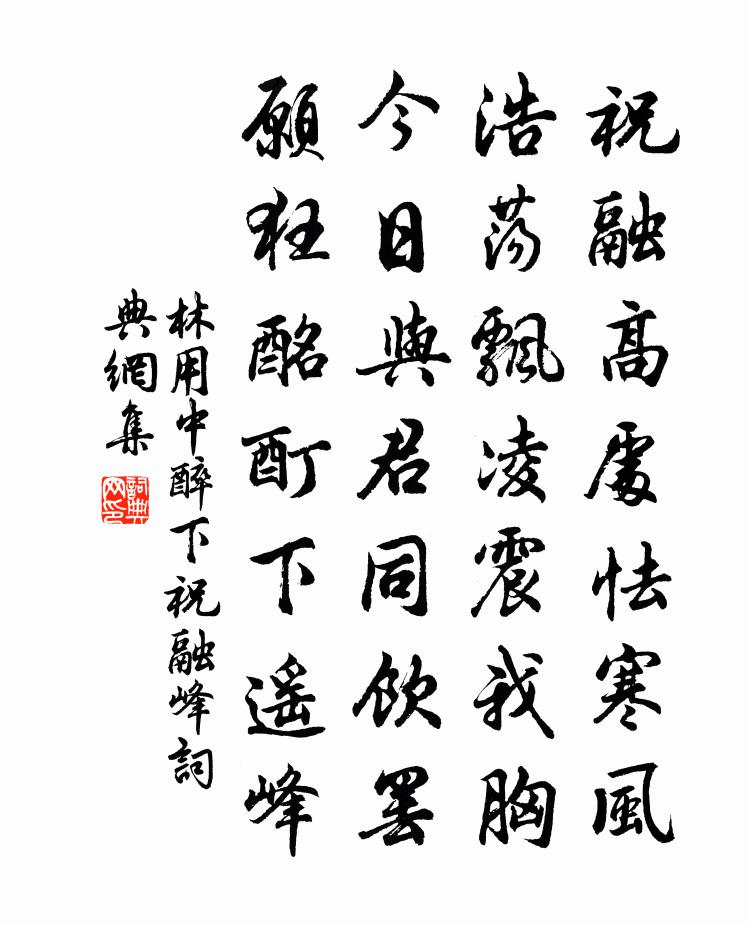 祝融高處怯寒風
浩荡飄凌震我胸
今日與君同飲罢
願狂酩酊下遥峰
林用中醉下祝融峰詞
典網集
詞典网印